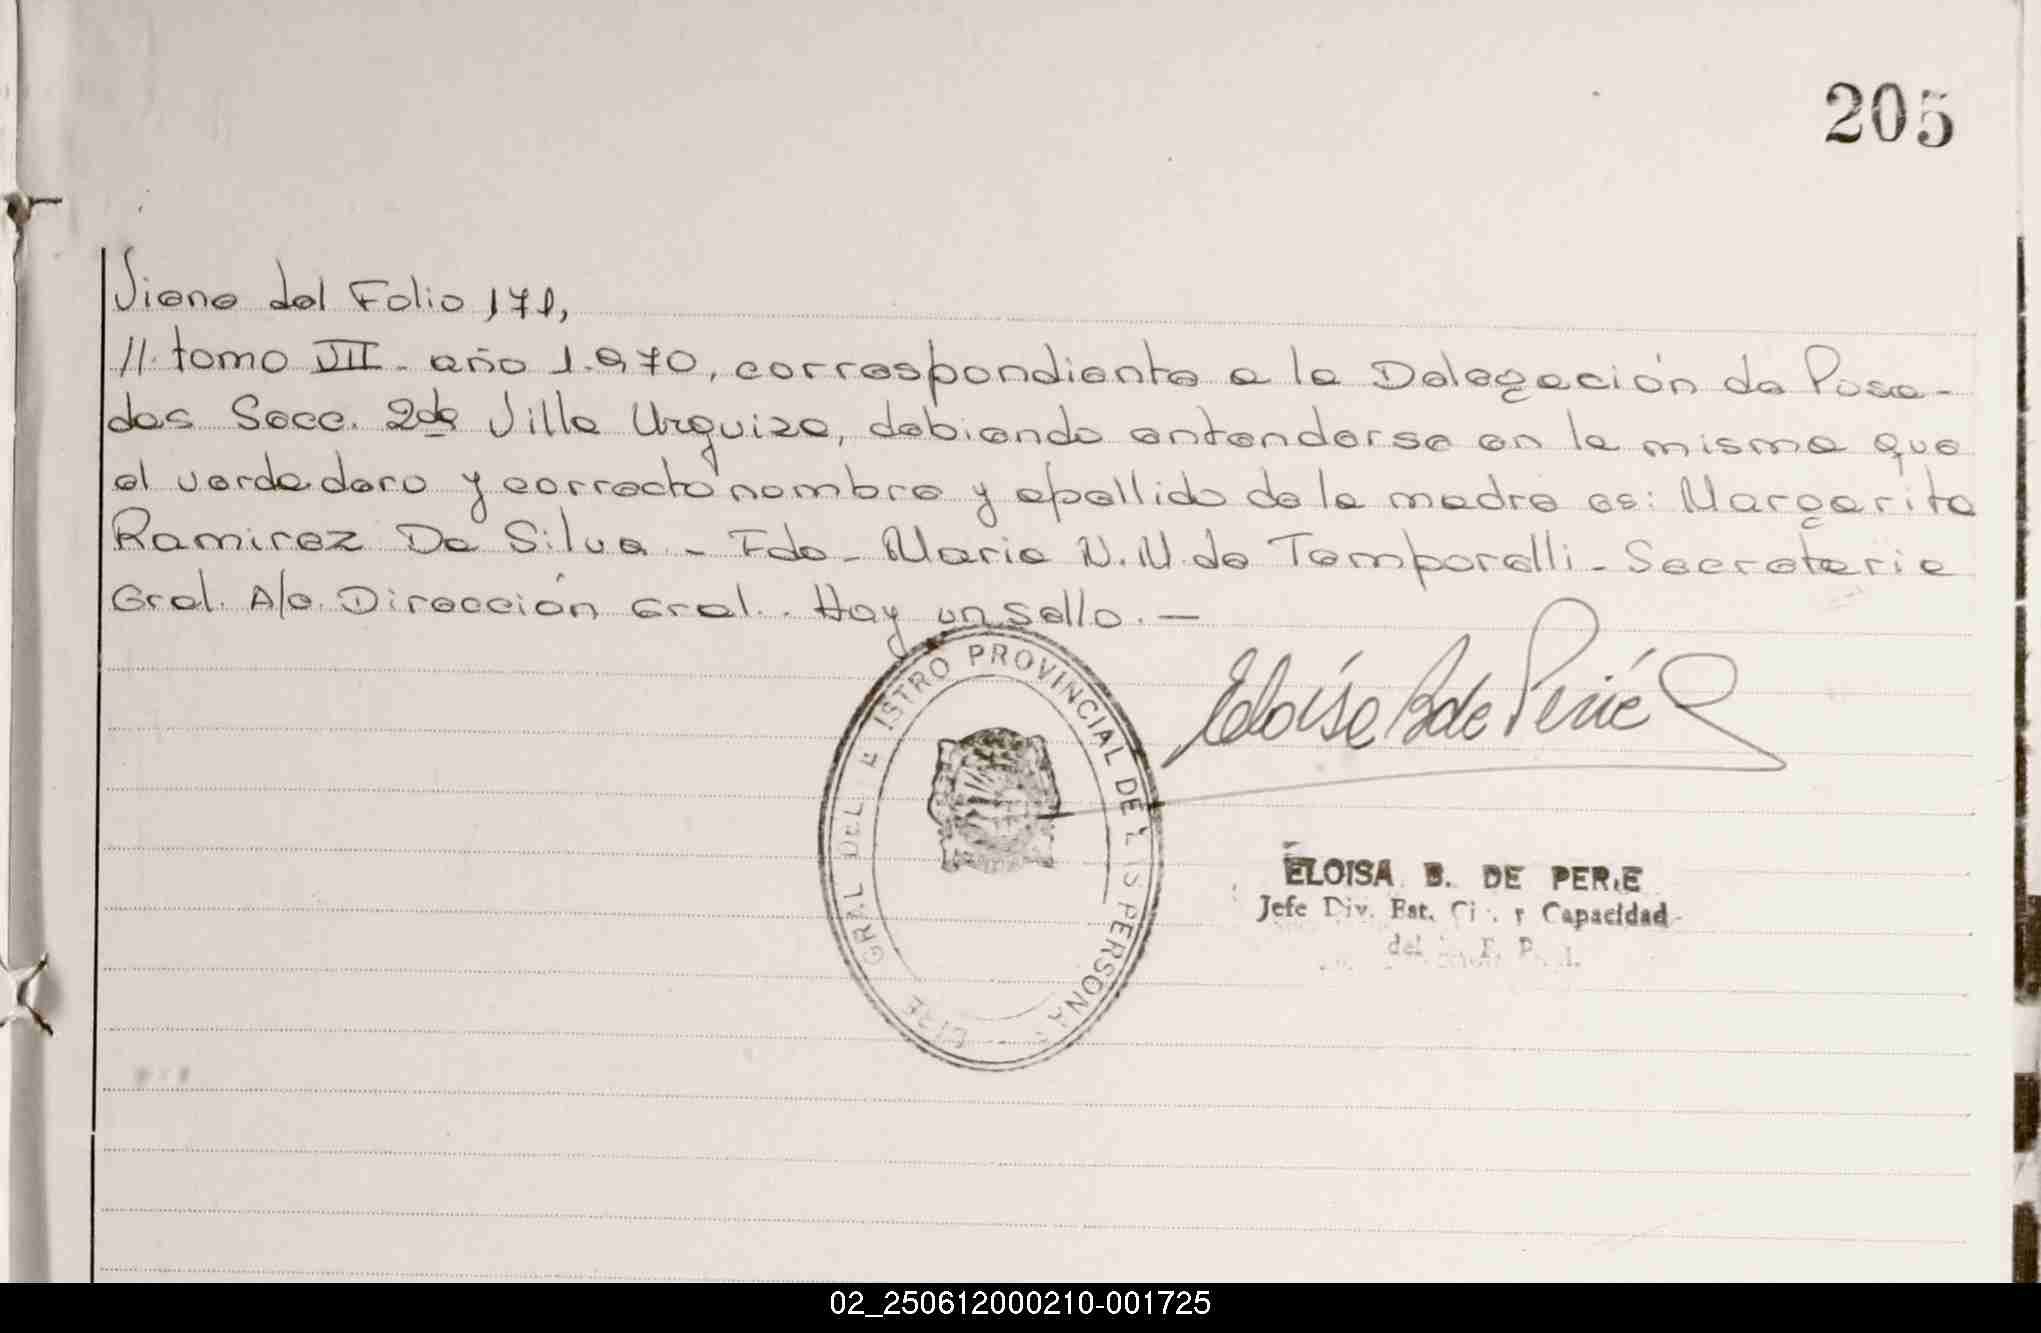 205
Viene del Folio 171,
//. tomo VII - año 1.970, correspondiente a la Delegación de Posa-
das Secc. 2da Villa Urquiza, debiendo entenderse en la misma que
el verdadero y correcto nombre y apellido de la madre es: Margarita
Ramirez De Silva - Fdo - Maria N. N. de Temporelli - Secretaria
Gral. A/c. Dirección Gral. . Hay un sello. —
GRAL DEL ISTRO PROVINCIAL DE PERSONA
Eloísa B de Perié
ELOISA B. DE PERIE
Jefe Div. Est. Ci . y Capacidad
del
02_250612000210-001725